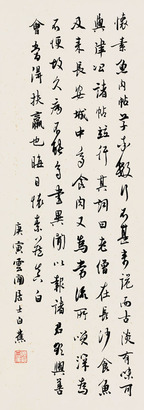 懷素魚肉帖草書數行不甚奇詭而平淡有味可
與律公諸帖並行其詞曰老僧在長沙食魚
及來長安城中多食肉又為常流所咲深為
不便故久病不能多書異聞以報諸君欲興善
會當得扶羸也晦日懷素藏真白
庚寅雲間居士白蕉